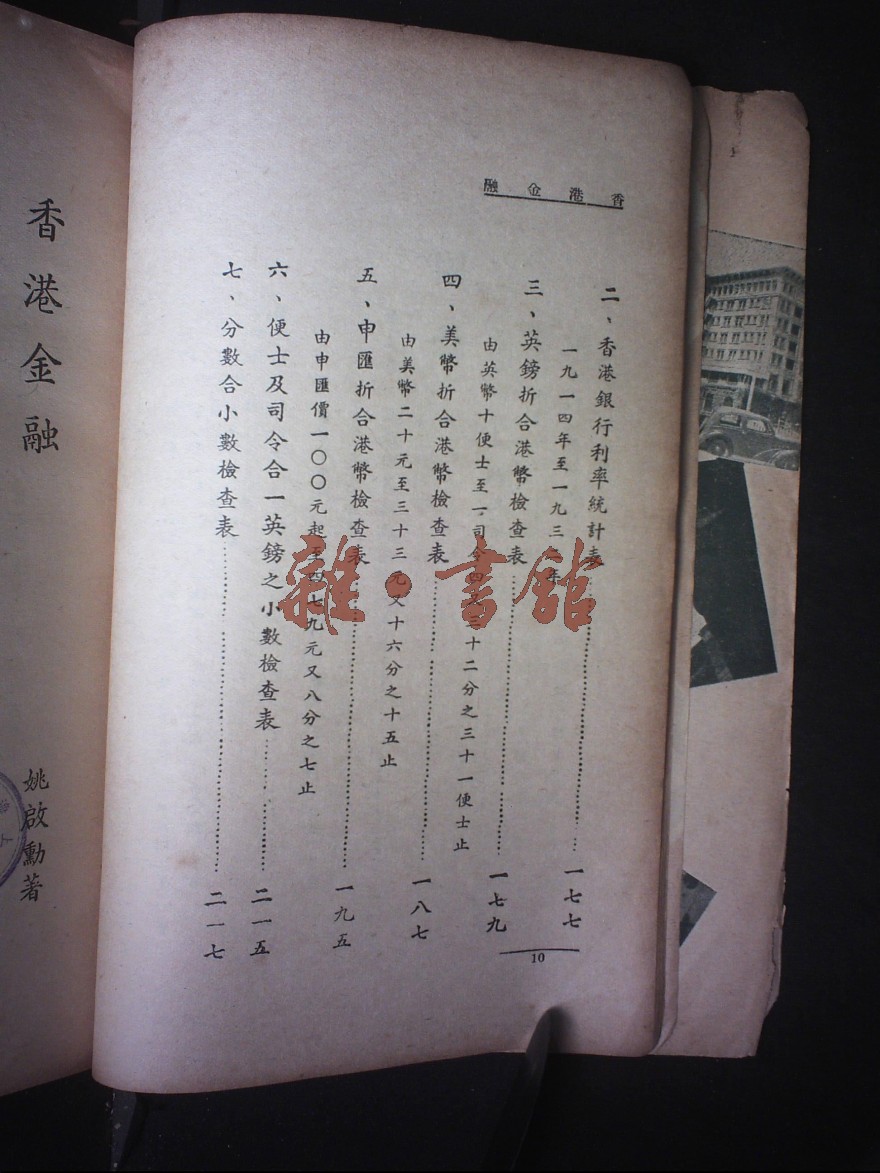 香港金融
二、香港銀行利率統計表……一七七
一九一四年至一九三二年
三、英鎊折合港幣檢查表……一七九
由英幣十便士至一司令四又三十二分之三十一便士止
四、美幣折合港幣檢查表……一八七
由美幣二十元至三十三元又十六分之十五止
五、申匯折合港幣檢查表……一九五
由申匯價一〇〇元起至四七九元又八分之七止
六、便士及司令合一英鎊之小數檢查表……二一五
七、分數合小數檢查表……二一七
10
香港金融
姚啟勳著
雜·書館